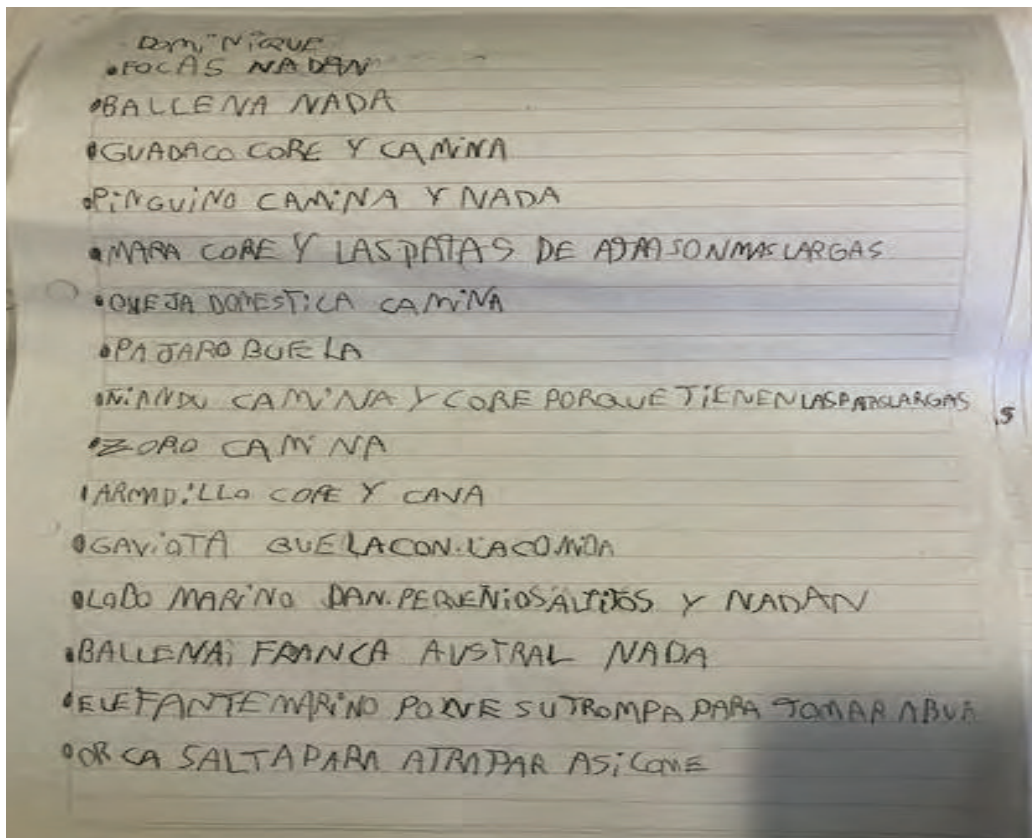 DOMINIQUE
•FOCAS NADAN
•BALLENA NADA
•GUADACO CORE Y CAMINA
•PINGUINO CAMINA Y NADA
•MARA CORE Y LAS PATAS DE ATRA SON MAS LARGAS
•OVEJA DOMESTICA CAMINA
•PAJARO BUELA
•ÑANDU CAMINA Y CORE PORQUE TIENEN LAS PATAS LARGAS
•ZORO CAMINA
•ARMADILLO CORE Y CAVA
•GAVIOTA BUELA CON LA COMIDA
•LOBO MARINO DAN PEQUENIO SALTITOS Y NADAN
•BALLENA FRANCA AUSTRAL NADA
•ELEFANTE MARINO PONE SU TROMPA PARA TOMAR
•ORCA SALTA PARA ATRAPAR ASI COME